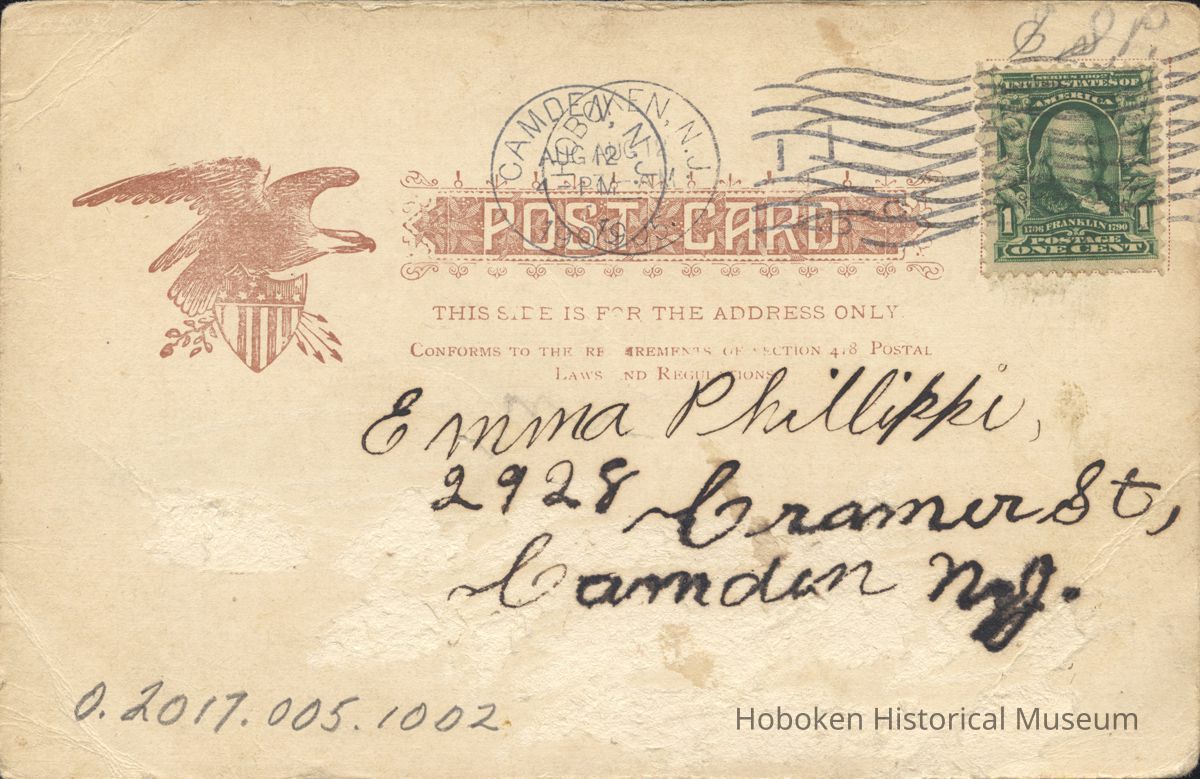 E S P.
CAMDEN, N.J.
AUG 12
PM
HOBOKEN, N.J.
AUG
SERIES 1902
UNITED STATES OF
AMERICA
1 1706 FRANKLIN 1790 1
POSTAGE
ONE CENT
POST CARD
THIS SIDE IS FOR THE ADDRESS ONLY
CONFORMS TO THE REQUIREMENTS OF SECTION 418 POSTAL
LAWS AND REGULATIONS
Emma Phillippi,
2928 Cramer St,
Camden N.J.
0.2017.005.1002
Hoboken Historical Museum